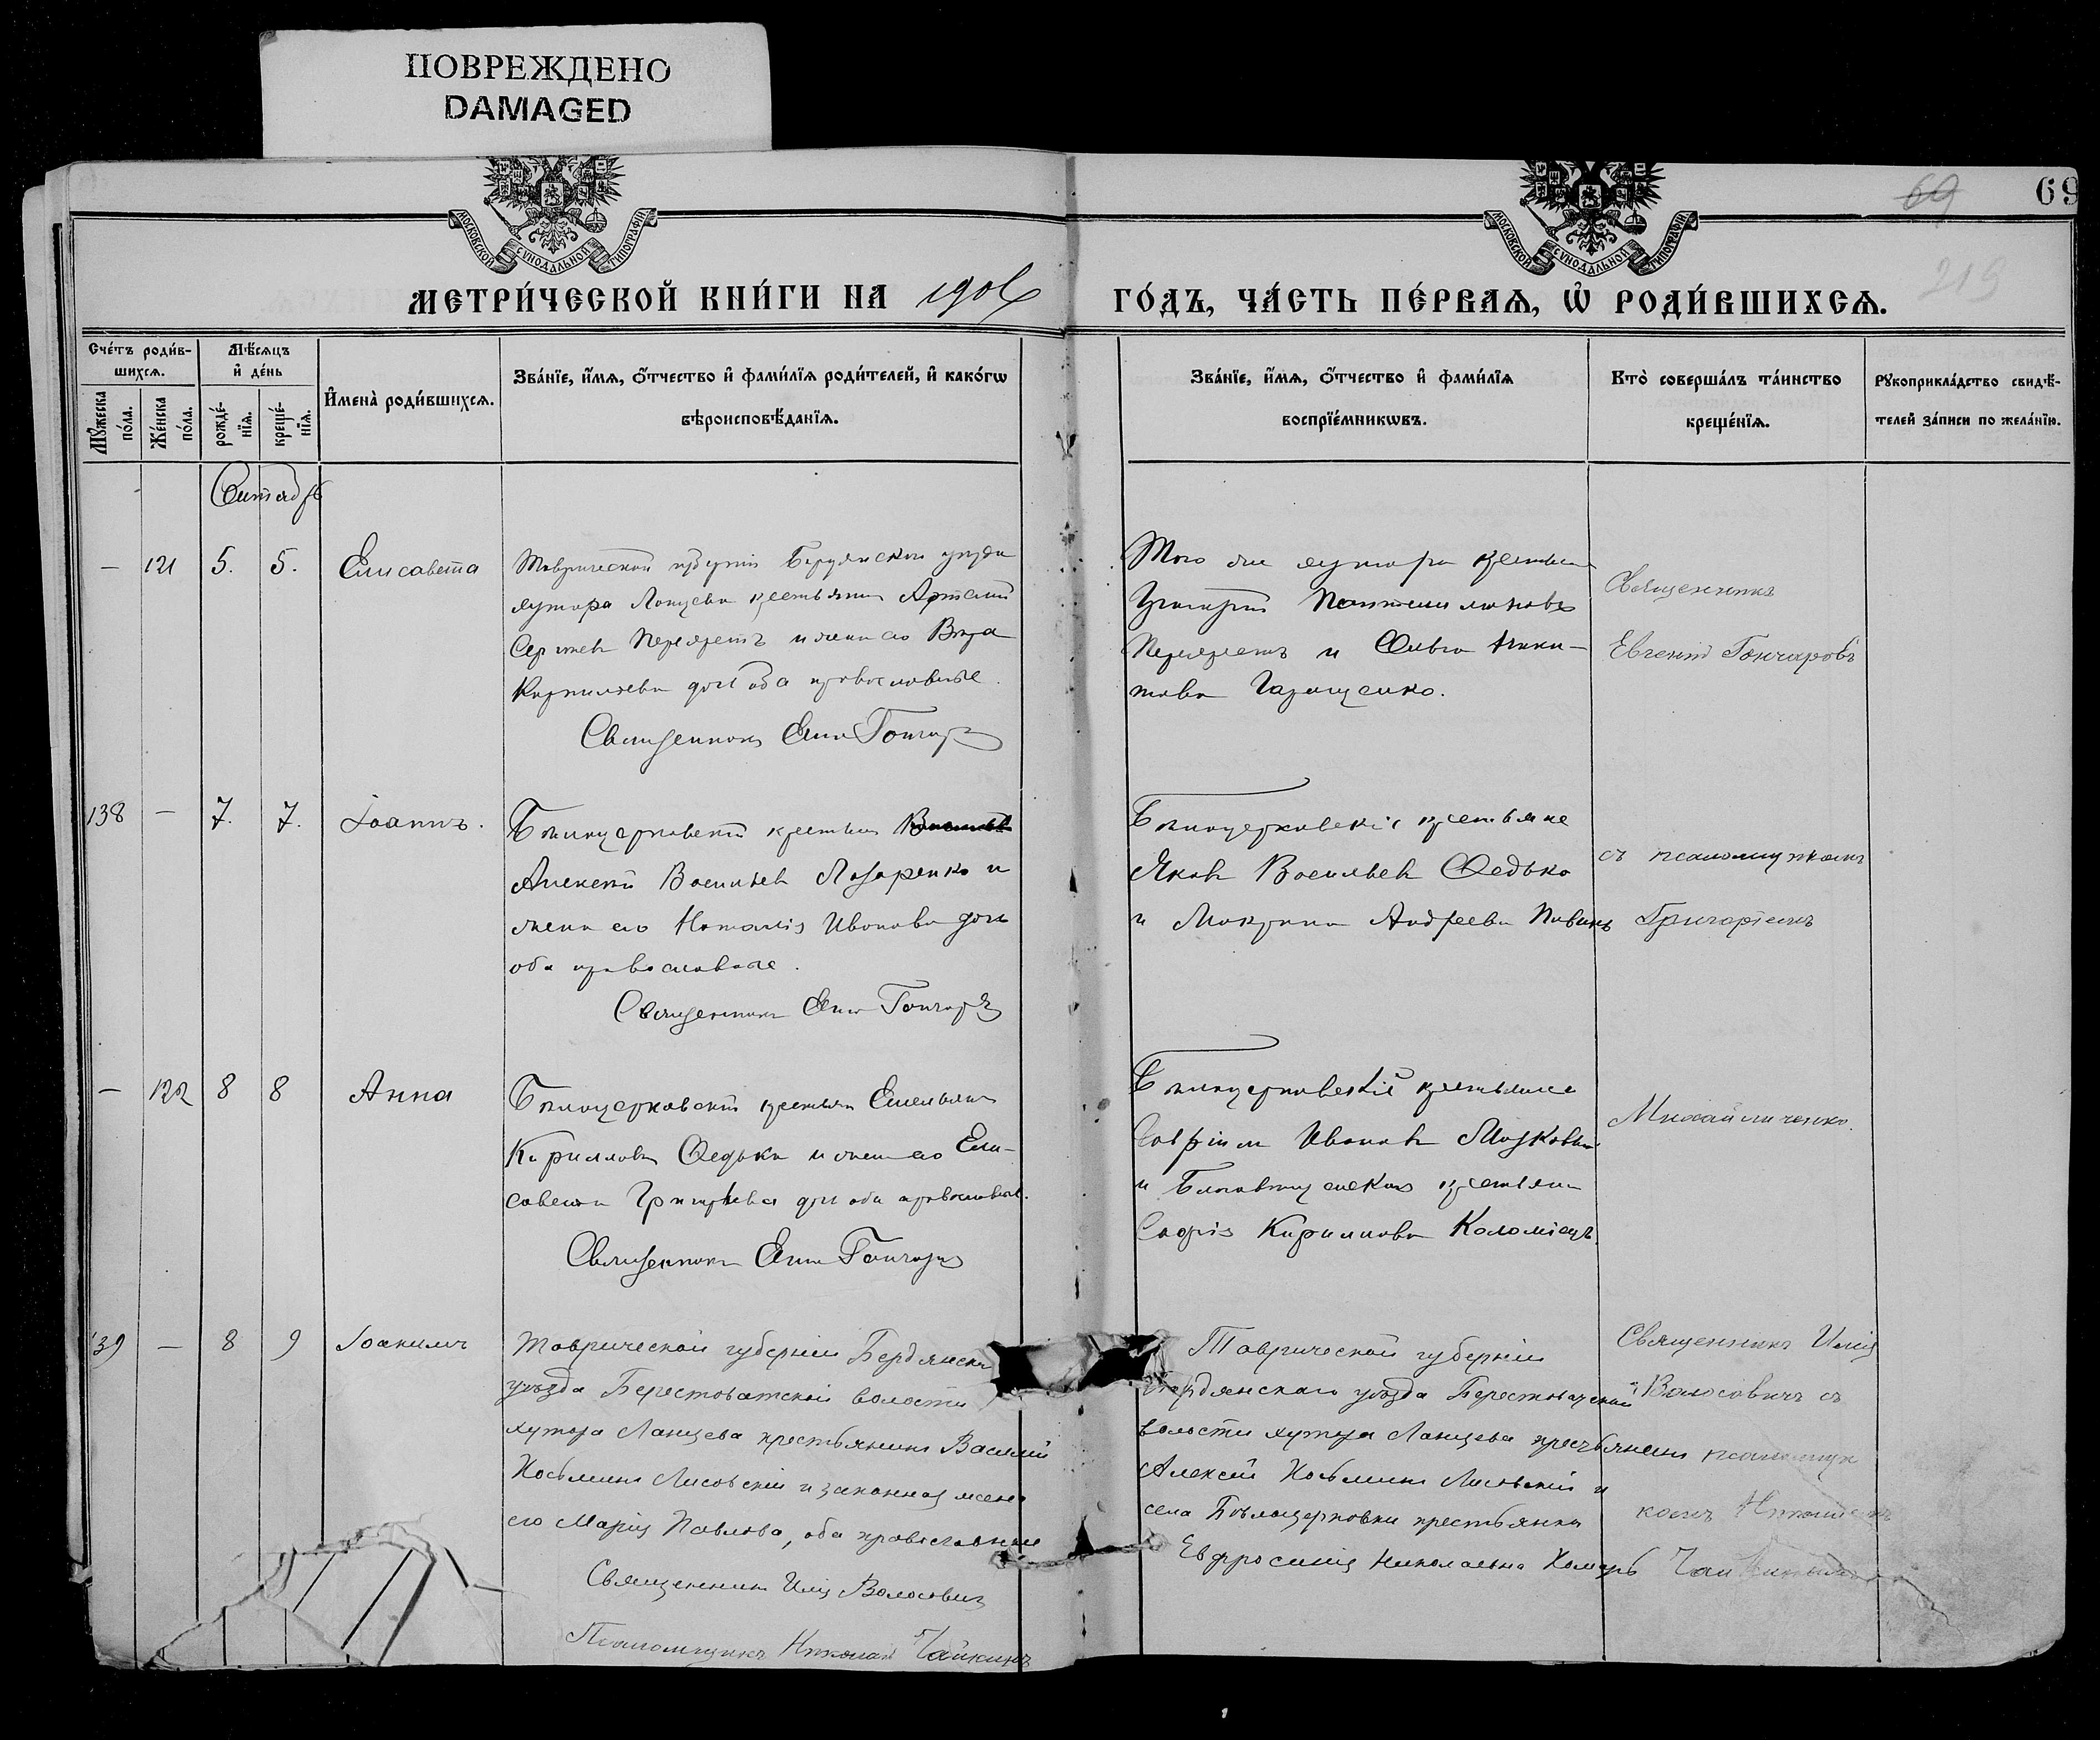 ПОВРЕЖДЕНО
DAMAGED
МОСКОВСКОЙ СѴНОДАЛЬНОЙ ТИПОГРАФІИ
МОСКОВСКОЙ СѴНОДАЛЬНОЙ ТИПОГРАФІИ
69
69
219
МЕТРИ́ЧЕСКОЙ КНИ́ГИ НА 1906
ГО́ДЪ, ЧА́СТЬ ПЕ́РВАѦ, Ѡ҆ РОДИ́ВШИХСѦ.
Сче́тъ роди́в-
шихсѧ.
Мѣ́сѧцъ
и҆ де́нь
Мꙋ́жеска по́ла.
Же́нска по́ла.
рожде́-
нїѧ.
креще́-
нїѧ.
И҆мена̀ роди́вшихсѧ.
Зва́нїе, и҆́мѧ, ѻ҆́тчество и҆ фами́лїѧ роди́телей, и҆ како́гѡ
вѣроисповѣ́данїѧ.
Зва́нїе, и҆́мѧ, ѻ҆́тчество и҆ фами́лїѧ
воспрїе́мникѡвъ.
Кто̀ соверша́лъ та́инство
креще́нїѧ.
Рꙋкоприкла́дство свидѣ́-
телей за́писи по жела́нїю.
Сентябрь
— 121 5. 5. Елисавета
Таврической губерніи Бердянскаго уѣзда
хутора Ланцева крестьянинъ Артемій
Сергіевъ Перехрестъ и жена его Вѣра
Корнильева дочь оба православные.
Священникъ Евг Гончаровъ
Того же хутора крестьян
Григорій Пантелимоновъ
Перехрестъ и Ольга Ники-
това Гаращенко.
Священникъ
Евгеній Гончаровъ
138 — 7. 7. Іоаннъ.
Бѣлоцерковскій крестьян
Алексѣй Васильевъ Лазаренко и
жена его Наталія Иванова дочь
оба православные.
Священникъ Евг Гончаровъ
Бѣлоцерковскіе крестьяне
Яковъ Васильевъ Федько
и Макрина Андреева
съ псаломщикомъ
Григоріемъ
— 122 8 8 Анна
Бѣлоцерковскій крестьян Емельянъ
Кирилловъ Федько и жена его Ели-
савета Григорьева дочь оба православные.
Священникъ Евг Гончаровъ
Бѣлоцерковскій крестьянинъ
Гавріилъ Ивановъ
и крестьян
Софія Кириллова Коломіецъ.
Михайличенко.
139 — 8 9 Іоакимъ
Таврической губерніи Бердянскаго
уѣзда Берестоватской волости
хутора Ланцева крестьянинъ Василій
Косьминъ Лисовскій и законная жена
его Марія Павлова, оба православные
Священникъ Илія Волосовичъ
Псаломщикъ Николай Чайкинъ
Таврической губерніи
Бердянскаго уѣзда Берестоватской
волости хутора Ланцева крестьянинъ
Алексѣй Косьминъ Лисовскій и
села Бѣлоцерковки крестьянка
Евфросинія Николаевна Комарь
Священникъ Илія
Волосовичъ съ
псаломщи
комъ Николаемъ
Чайкинымъ